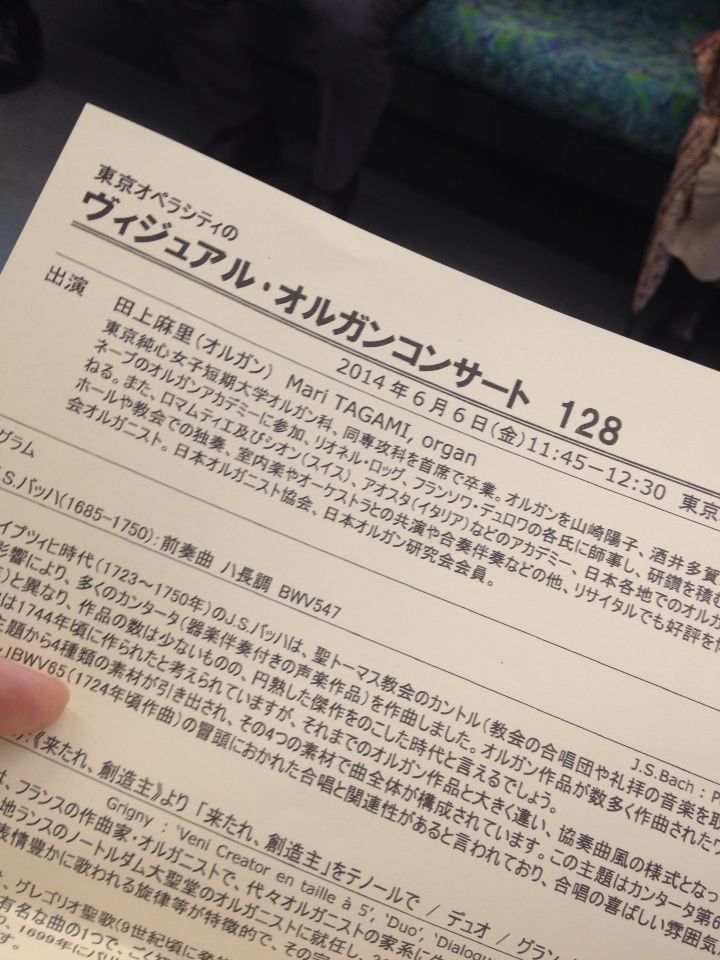 東京オペラシティの
ヴィジュアル・オルガンコンサート 128
2014年6月6日(金)11:45－12:30 東京
出演 田上麻里(オルガン) Mari TAGAMI, organ
東京純心女子短期大学オルガン科、同専攻科を首席で卒業。オルガンを山崎陽子、酒井多賀
ネーブのオルガンアカデミーに参加、リオネル・ロッグ、フランソワ・デュロワの各氏に師事し、研鑽を積む
ねる。また、ロマムティエ及びシオン(スイス)、アオスタ(イタリア)などのアカデミー、日本各地でのオルガ
ホールや教会での独奏、室内楽やオーケストラとの共演や合奏伴奏などの他、リサイタルでも好評を
会オルガニスト。日本オルガニスト協会、日本オルガン研究会会員。
グラム
.S.バッハ(1685-1750):前奏曲 ハ長調 BWV547
J.S.Bach : P
イプツィヒ時代(1723～1750年)のJ.S.バッハは、聖トーマス教会のカントル(教会の合唱団や礼拝の音楽を取
影響により、多くのカンタータ(器楽伴奏付きの声楽作品)を作曲しました。オルガン作品が数多く作曲されたワ
と異なり、作品の数は少ないものの、円熟した傑作をのこした時代と言えるでしょう。
は1744年頃に作られたと考えられていますが、それまでのオルガン作品と大きく違い、協奏曲風の様式となっ
主題から4種類の素材が引き出され、その4つの素材で曲全体が構成されています。この主題はカンタータ第6
BWV65(1724年頃作曲)の冒頭におかれた合唱と関連性があると言われており、合唱の喜ばしい雰囲気
:《来たれ、創造主》より 「来たれ、創造主」をテノールで / デュオ / グラン
Grigny : 'Veni Creator en taille à 5', 'Duo', 'Dialogu
、フランスの作曲家・オルガニストで、代々オルガニストの家系に
地ランスのノートルダム大聖堂のオルガニストに就任し、
表情豊かに歌われる旋律等が特徴的で、その
、グレゴリオ聖歌(9世紀頃に
有名な曲の1つで、
、1699年にパリ
す。